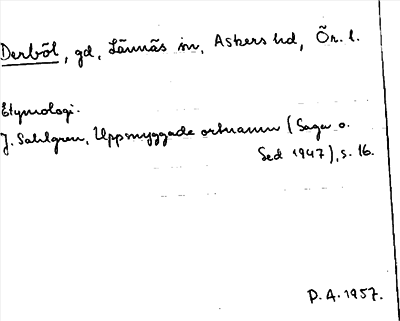 Derböl, gd, Lännäs sn, Askers hd, Ör. l.
Etymologi.
J. Sahlgren, Uppsnyggade ortnamn (Saga o.
Sed 1947), s. 16.
P. A. 1957.